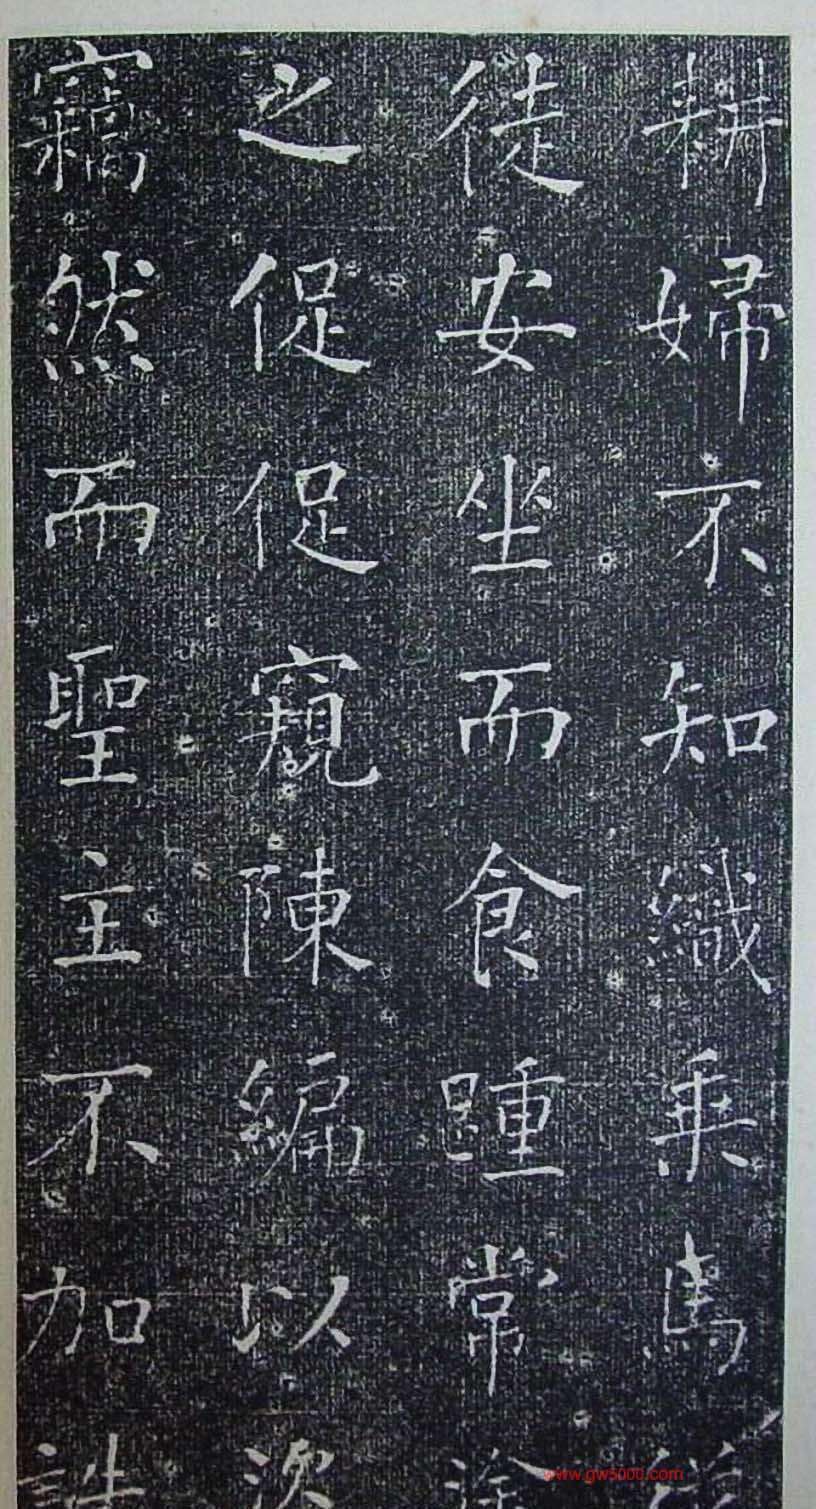 耕婦不知織乘馬從
徒安坐而食踵常途
之促促窺陳編以盜
竊然而聖主不加誅
www.gw5000.com